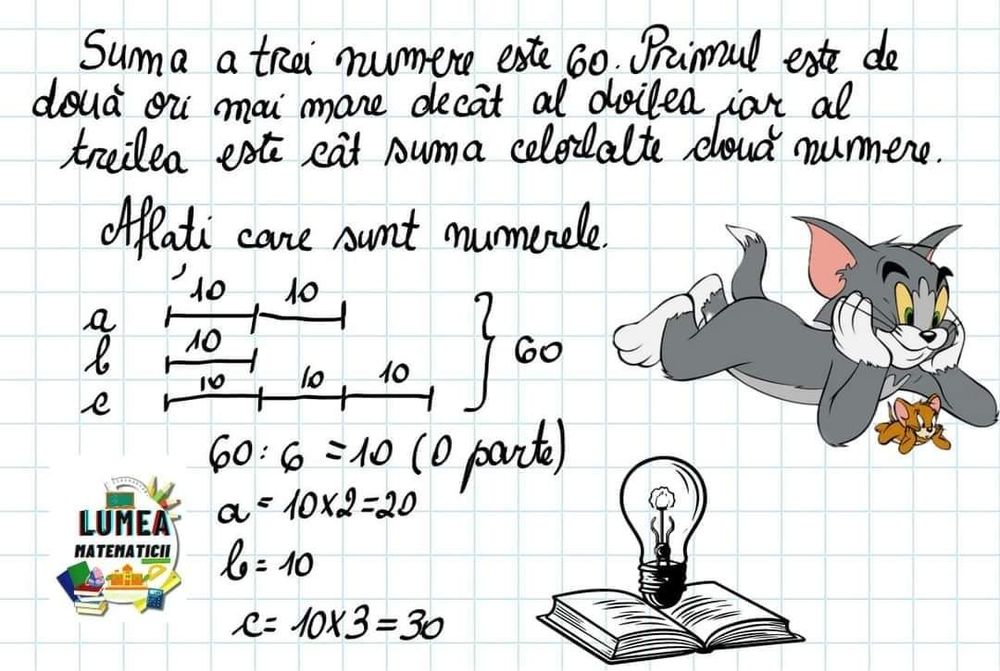 Suma a trei numere este 60. Primul este de
două ori mai mare decât al doilea iar al
treilea este cât suma celorlalte două numere.
Aflați care sunt numerele.
10 10
a
10
b
60
10 10 10
c
60 : 6 = 10 (O parte)
a = 10×2=20
b = 10
c = 10×3 = 30
LUMEA
MATEMATICII